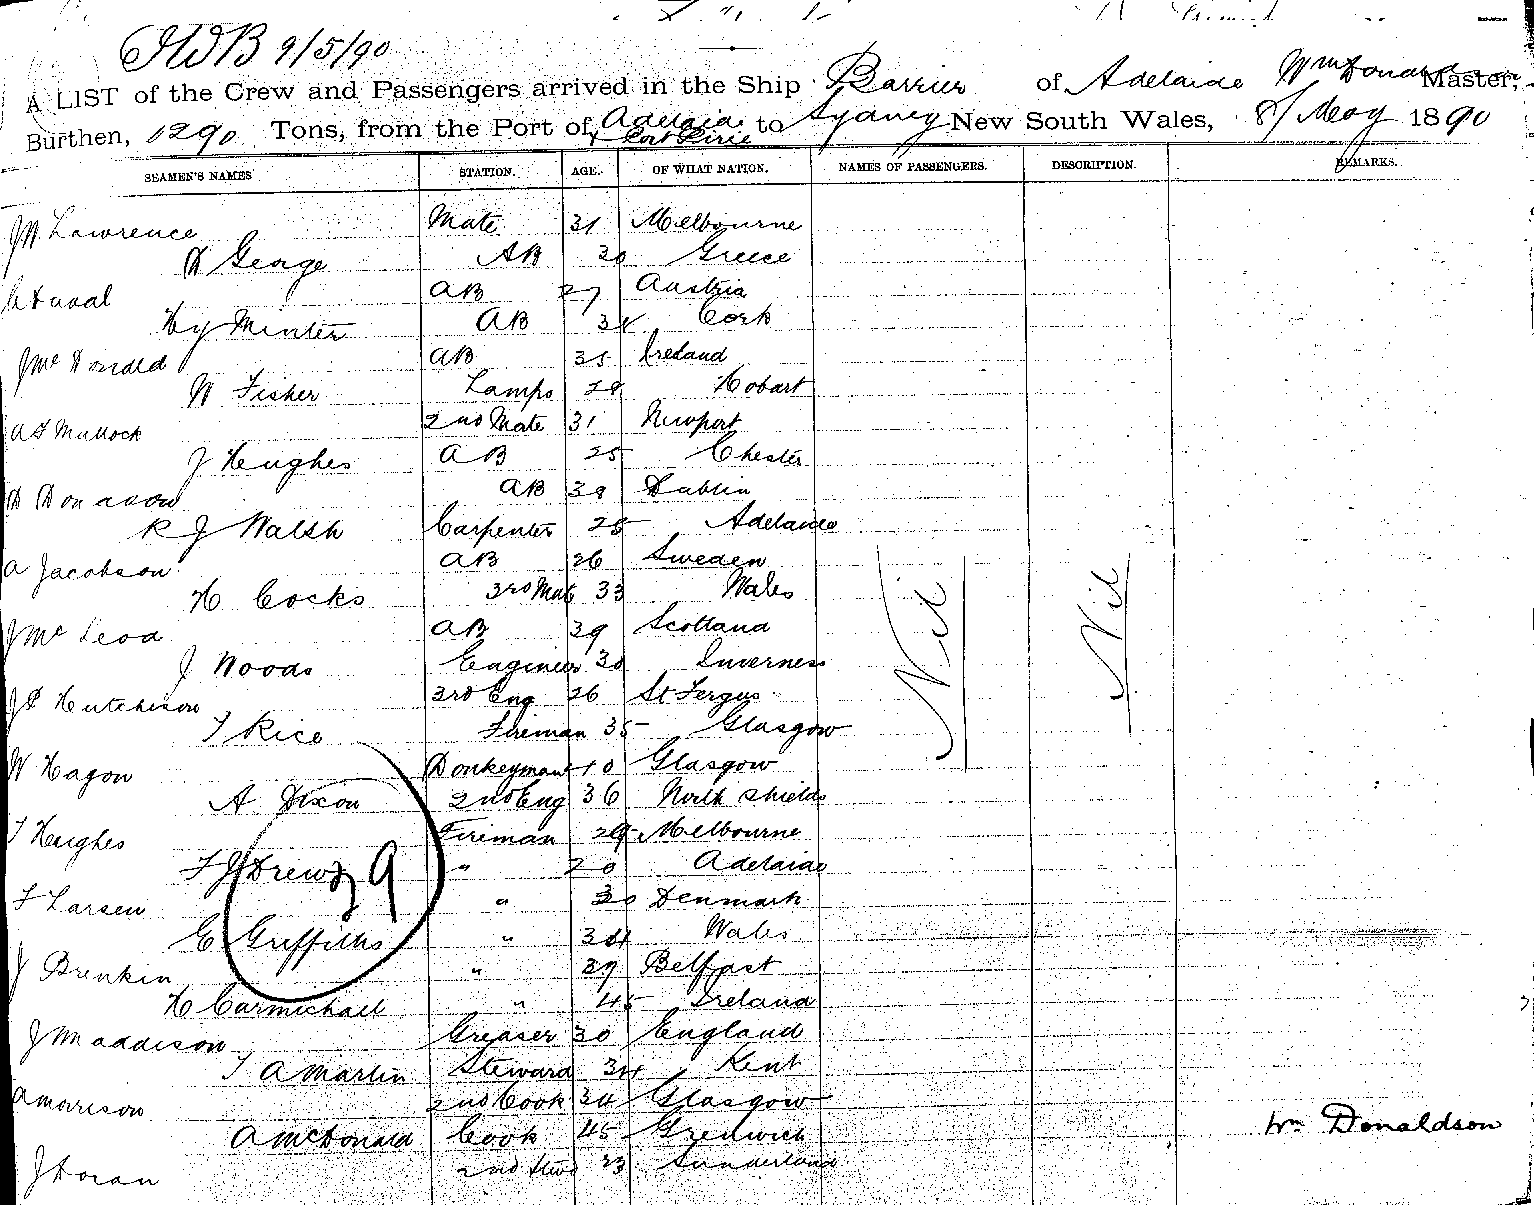 JWB 9/5/90
A LIST of the Crew and Passengers arrived in the Ship Barrier of Adelaide Wm Donaldson Master,
Burthen, 1290 Tons, from the Port of Adelaide & Port Pirie to Sydney New South Wales, 8/ May 1890
SEAMEN'S NAMES STATION. AGE. OF WHAT NATION. NAMES OF PASSENGERS. DESCRIPTION. REMARKS.
Lawrence Mate 31 Melbourne
D George AB 30 Greece
C Duval AB 27 Austria
Hy Minter AB 34 Cork
J Mc Donald AB 35 Ireland
W Fisher Lamps 28 Hobart
A S Mullock 2nd Mate 31 Newport
J Hughes AB 25 Chester
D Donavon AB 38 Dublin
R J Walsh Carpenter 25 Adelaide
A Jacobson AB 26 Sweden
H Cocks 3rd Mate 33 Wales
J Mc Leod AB 39 Scotland
J Woods Engineer 30 Inverness
J D Hutchison 3rd Eng 26 St Fergus
T Rice Fireman 35 Glasgow
W Hagon Donkeyman 40 Glasgow
A Dixon 2nd Eng 36 North Shields
T Hughes Fireman Melbourne
F J Drew " 20 Adelaide
F Larsen " 30 Denmark
E Griffiths " 34 Wales
J Brenkin " 39 Belfast
H Carmichael " 45 Ireland
J Maddison Greaser 30 England
T A Martin Steward 34 Kent
A Morrison 2nd Cook 30 Glasgow
A McDonald Cook 45 Greenwich
J Doran 2nd Stwd 23 Sunderland
9
Nil
Nil
Wm Donaldson